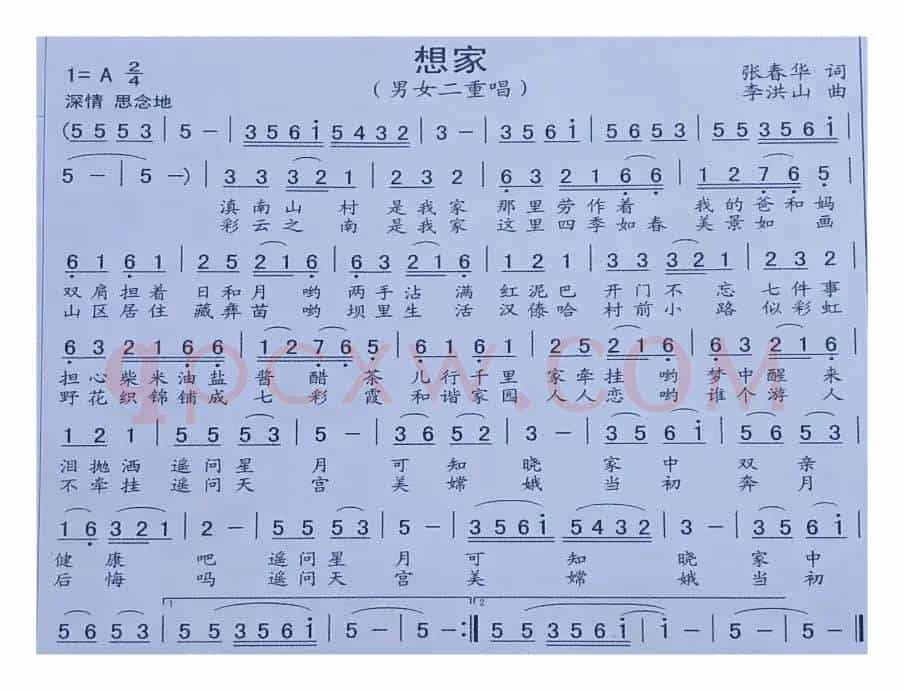 想家
1= A 2/4
（男女二重唱）
张春华 词
深情 思念地
李洪山 曲
(5 5 5 3 | 5 － | 3 5 6 i 5 4 3 2 | 3 － | 3 5 6 i | 5 6 5 3 | 5 5 3 5 6 i |
5 － | 5 －) | 3 3 3 2 1 | 2 3 2 | 6 3 2 1 6 6 | 1 2 7 6 5 |
滇南山 村 是我家 那里劳作着 我的爸和妈
彩云之 南 是我家 这里四季如春 美景如 画
6 1 6 1 | 2 5 2 1 6 | 6 3 2 1 6 | 1 2 1 | 3 3 3 2 1 | 2 3 2 |
双肩担着 日和月 哟 两手沾 满 红泥巴 开门不 忘 七件事
山区居住 藏彝苗 哟 坝里生 活 汉傣哈 村前小 路 似彩虹
6 3 2 1 6 6 | 1 2 7 6 5 | 6 1 6 1 | 2 5 2 1 6 | 6 3 2 1 6 |
担心柴米油盐 酱 醋 茶 儿行千里 家牵挂 哟 梦中醒 来
野花织锦铺成 七 彩 霞 和谐家园 人人恋 哟 谁个游 人
1 2 1 | 5 5 5 3 | 5 － | 3 6 5 2 | 3 － | 3 5 6 i | 5 6 5 3 |
泪抛洒 遥问星 月 可 知 晓 家 中 双 亲
不牵挂 遥问天 宫 美 嫦 娥 当 初 奔 月
1 6 3 2 1 | 2 － | 5 5 5 3 | 5 － | 3 5 6 i | 5 4 3 2 | 3 － | 3 5 6 i |
健 康 吧 遥问星 月 可 知 晓 家 中
后 悔 吗 遥问天 宫 美 嫦 娥 当 初
1. 2.
5 6 5 3 | 5 5 3 5 6 i | 5 － | 5 － :‖ 5 5 3 5 6 i | i － | 5 － | 5 － ‖
qpcxw.com